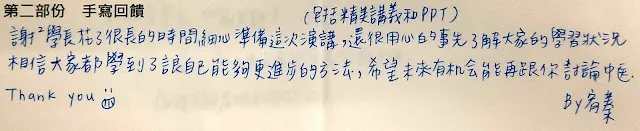 第二部份 手寫回饋
(包括精美講義和PPT)
謝²學長花了很長的時間細心準備這次演講,還很用心的事先了解大家的學習狀況
相信大家都學到了讓自己能夠更進步的方法,希望未來有机会能再跟你討論中医.
Thank you
By 宥蓁